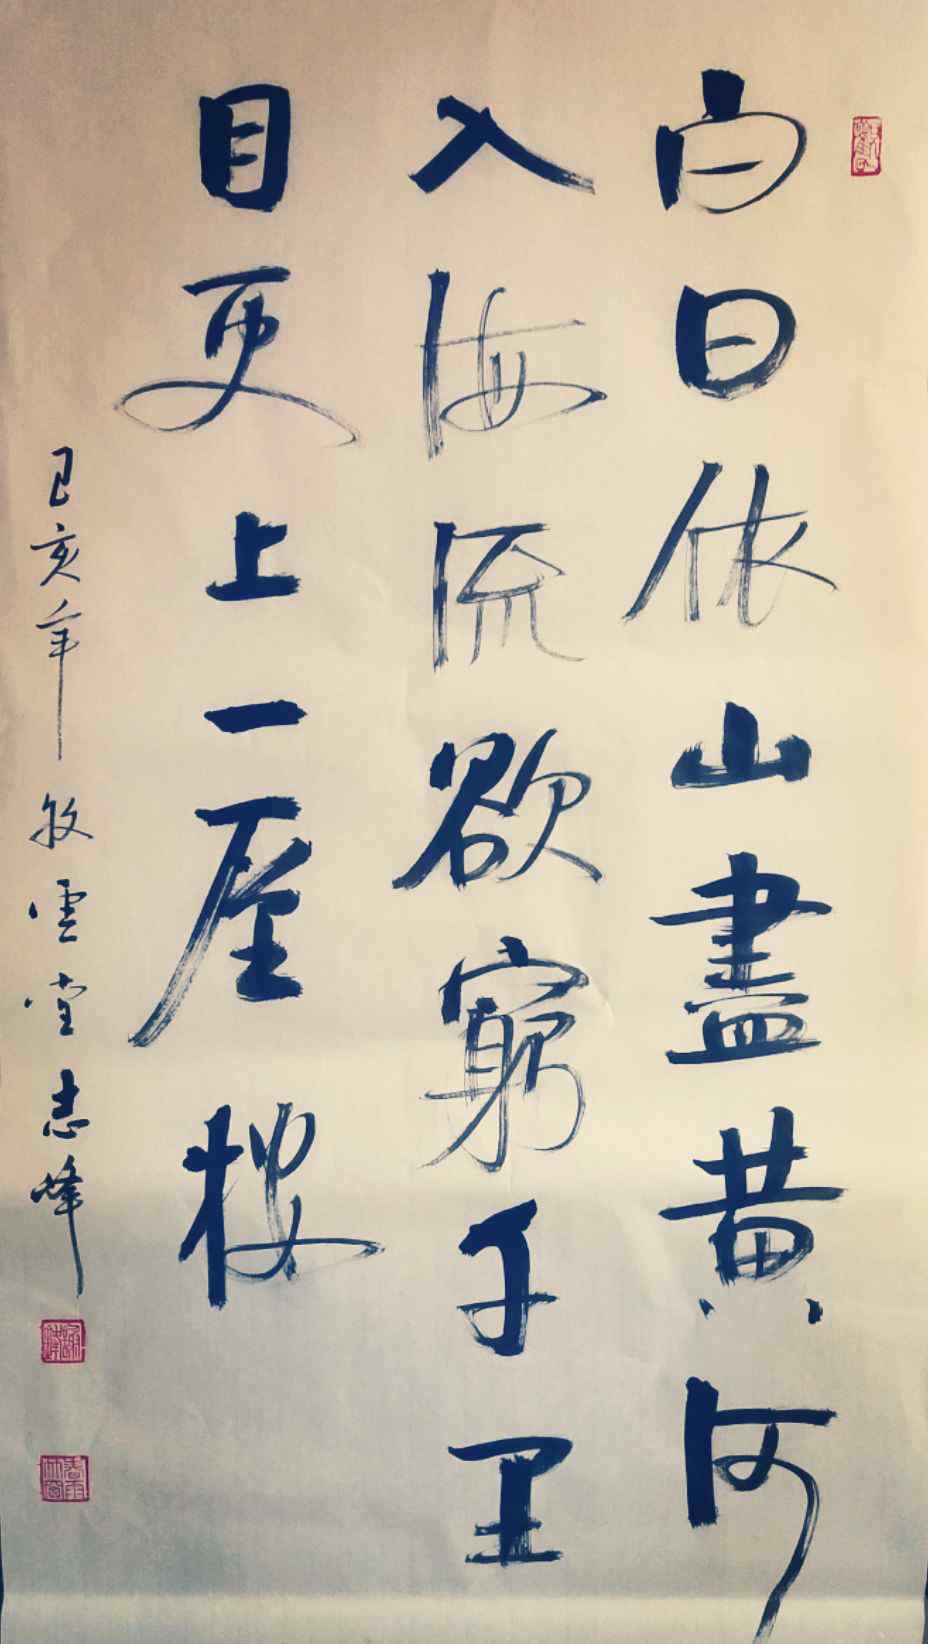 白日依山盡黄河
入海流欲窮千里
目更上一层楼
己亥年牧雲堂志峰